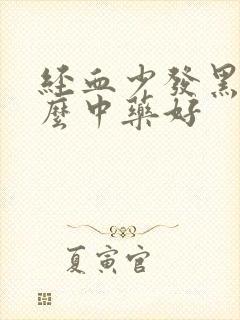 經血少發黑
麼中藥好
夏寅官